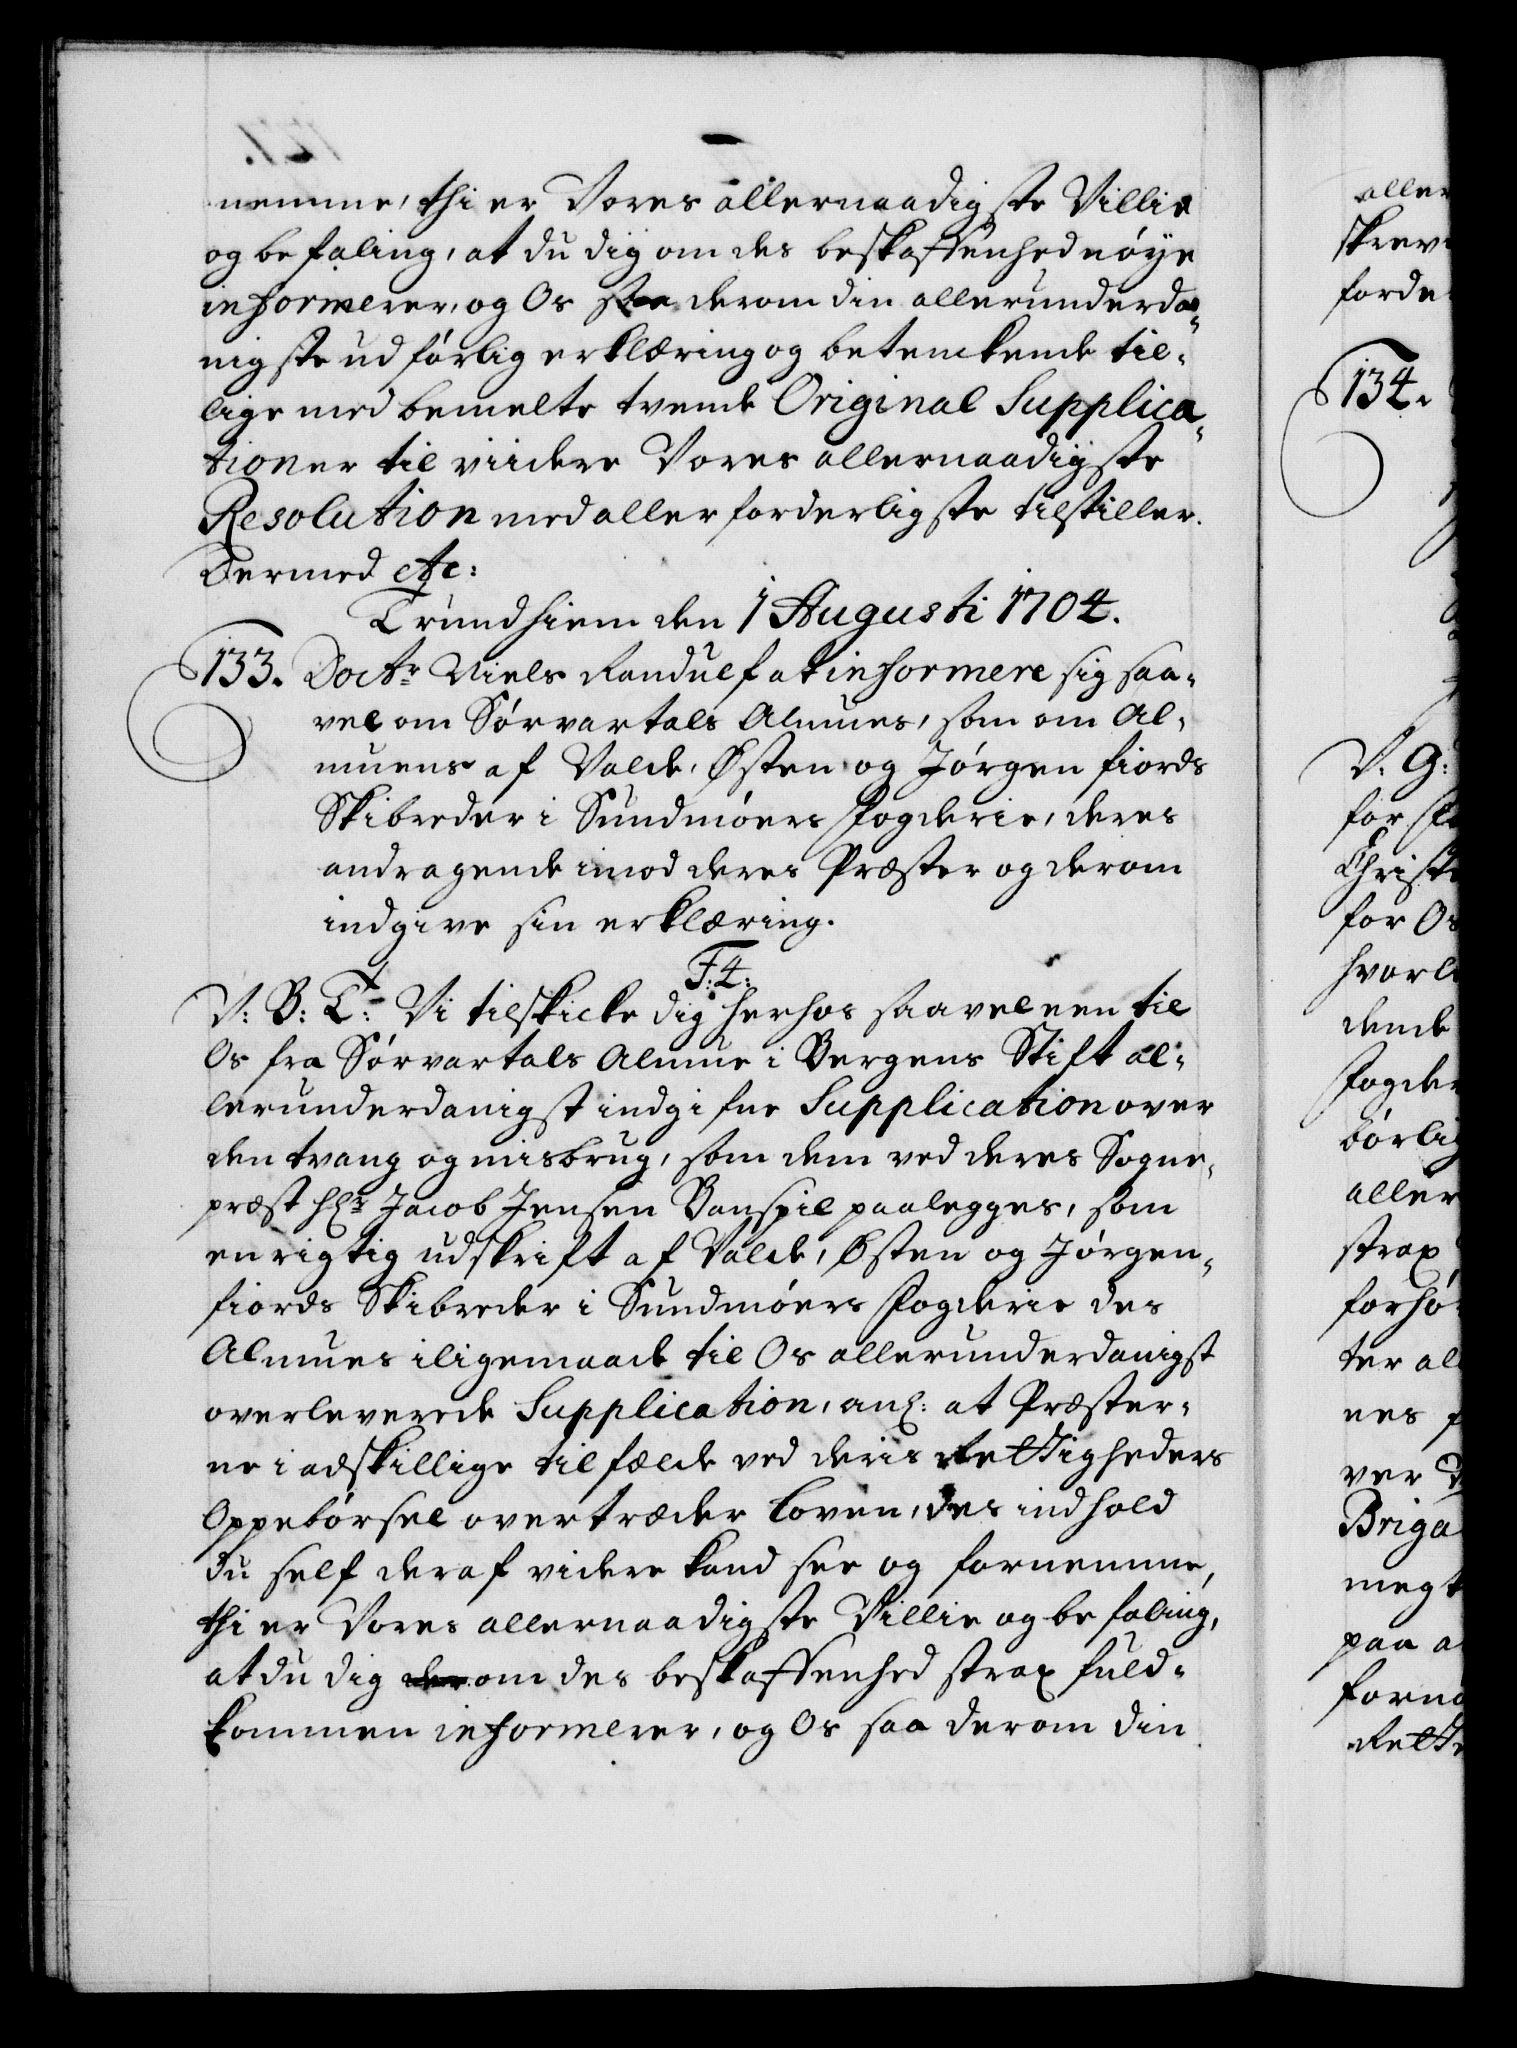 nemme, thi er Vores allernaadigste Villie
og befaling, at du dig om des beskaffenhed nöye
informerer, og Os saa derom din allerunderda-
nigste udförlig erklæring og betenckende til-
lige med bemelte tvende Original Supplica-
tioner til viidere Vores allernaadigste
Resolution med allerforderligste tilstiller.
Dermed etc:
Trundhiem den 1 Augusti 1704.
133. Doctr Niels Randulf at informere sig saa-
vel om Sörvartals Almues, som om Al-
muens af Valde, Østen og Jörgenfiords
Skibreder i Sundmöers Fogderie, deres
andragende imod deres Præster og derom
indgive sin erklæring.
F: 4:
V: B: T: Vi tilskicke dig herhos saavel een til
Os fra Sörvartals Almue i Bergens Stift al-
lerunderdanigst indgifne Supplication over
den tvang og misbrug, som dem ved deres Sogne-
præst Hr Jacob Jensen Banspil paalegges, som
en rigtig udskrift af Valde, Østen og Jörgen-
fiords Skibreder i Sundmöers Fogderie des
Almues iligemaade til Os allerunderdanigst
overleverede Supplication, anl: at Præster-
ne i adskillige tilfælde ved deris Rettigheders
Oppebörsel overtræder Loven, des indhold
du self deraf videre kand see og fornemme,
thi er Vores allernaadigste Villie og befaling,
at du dig der om des beskaffenhed strax fuld-
kommen informerer, og Os saa derom din
aller
skrev
forde
134.
V: G:
for
Christ
for Os
hvorl
dende
Fogder
börlig
aller
strax
forhö
ter al
nes
ver
Briga
megt
paa a
forno
Rette